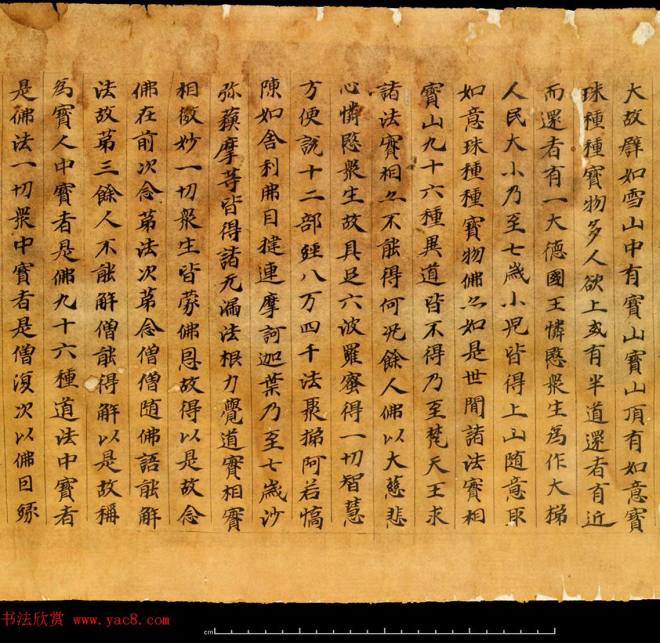 大故譬如雪山中有寶山寶山頂有如意寶
珠種種寶物多人欲上或有半道還者有近
而還者有一大德國王憐愍衆生為作大梯
人民大小乃至七歲小兒皆得上山随意取
如意珠種種寶物佛亦如是世間諸法實相
寶山九十六種異道皆不得乃至梵天王求
諸法實相亦不能得何况餘人佛以大慈悲
心憐愍衆生故具足六波羅蜜得一切智慧
方便說十二部經八万四千法聚梯阿若憍
陳如舍利弗目揵連摩訶迦葉乃至七歲沙
弥蘇摩等皆得諸无漏法根力覺道實相實
相微妙一切衆生皆蒙佛恩故得以是故念
佛在前次念苐法次苐念僧僧随佛語能解
法故苐三餘人不能解僧能得解以是故稱
為寳人中寳者是佛九十六種道法中寳者
是佛法一切衆中寳者是僧復次以佛因緣
书法欣赏 www.yac8.com
cm